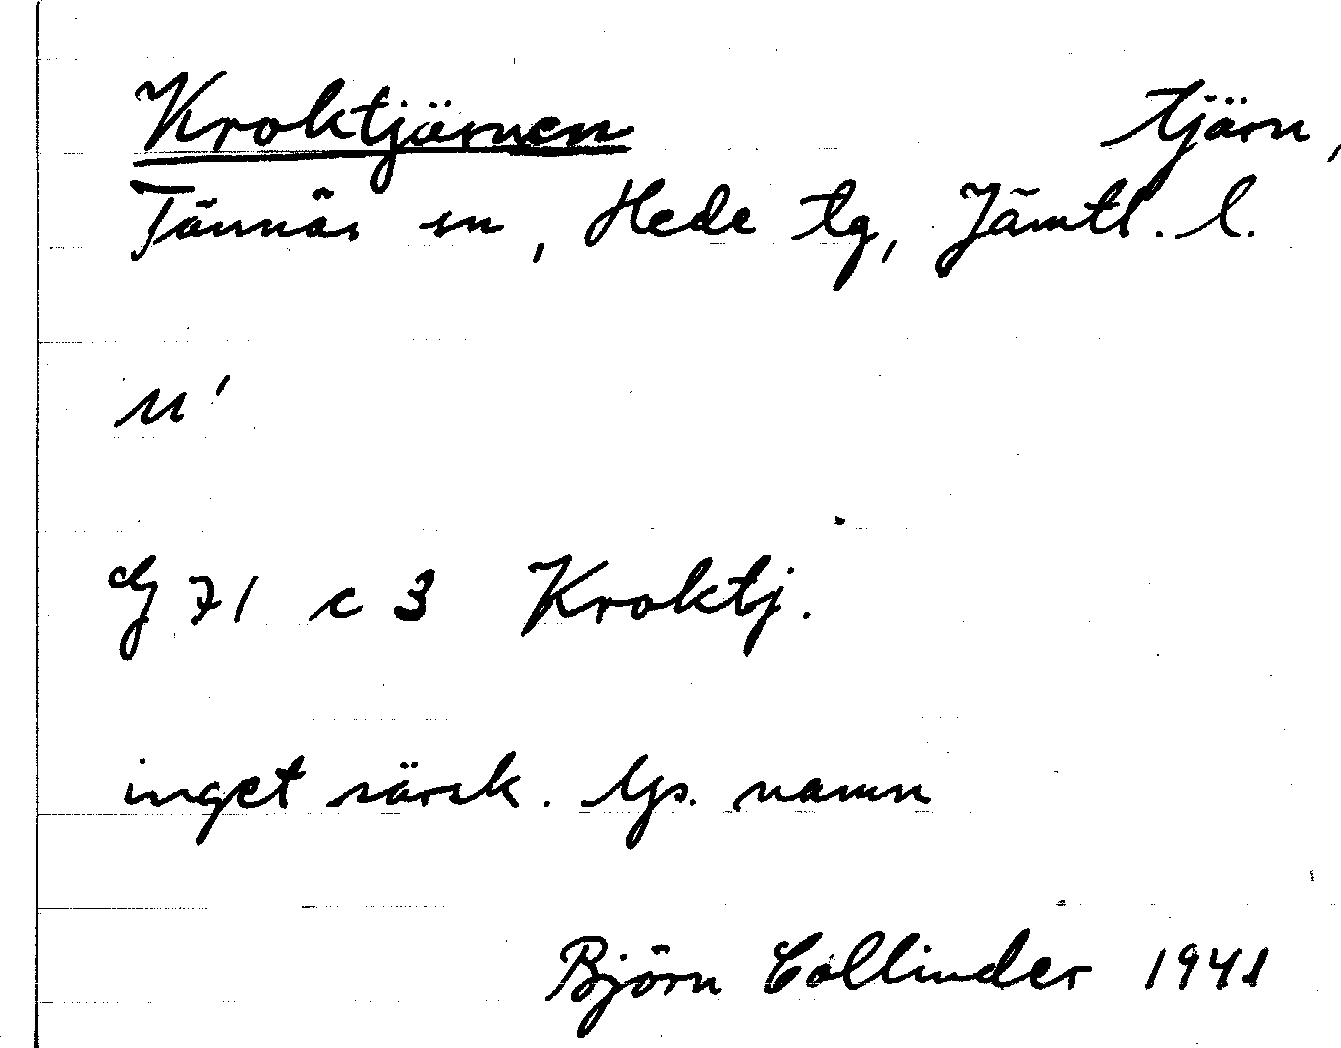 Kroktjärnen tjärn,
Tännäs sn, Hede tg, Jämtl. l.
u'
G 71 c 3 Kroktj.
inget särsk. lps. namn
Björn Collinder 1941